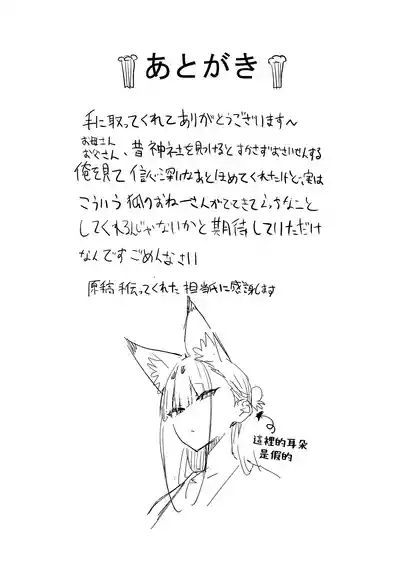 あとがき
手に取ってくれてありがとうございます〜
お母さん
お父さん、昔神社を見つけるとすかさずおさいせんする
俺を見て信心深いなあとほめてくれたけど、実は
こういう狐のおねーさんがでてきてえっちなこと
してくれるんじゃないかと期待していただけ
なんですごめんなさい
原稿手伝ってくれた担当氏に感謝します
這裡的耳朵
是假的